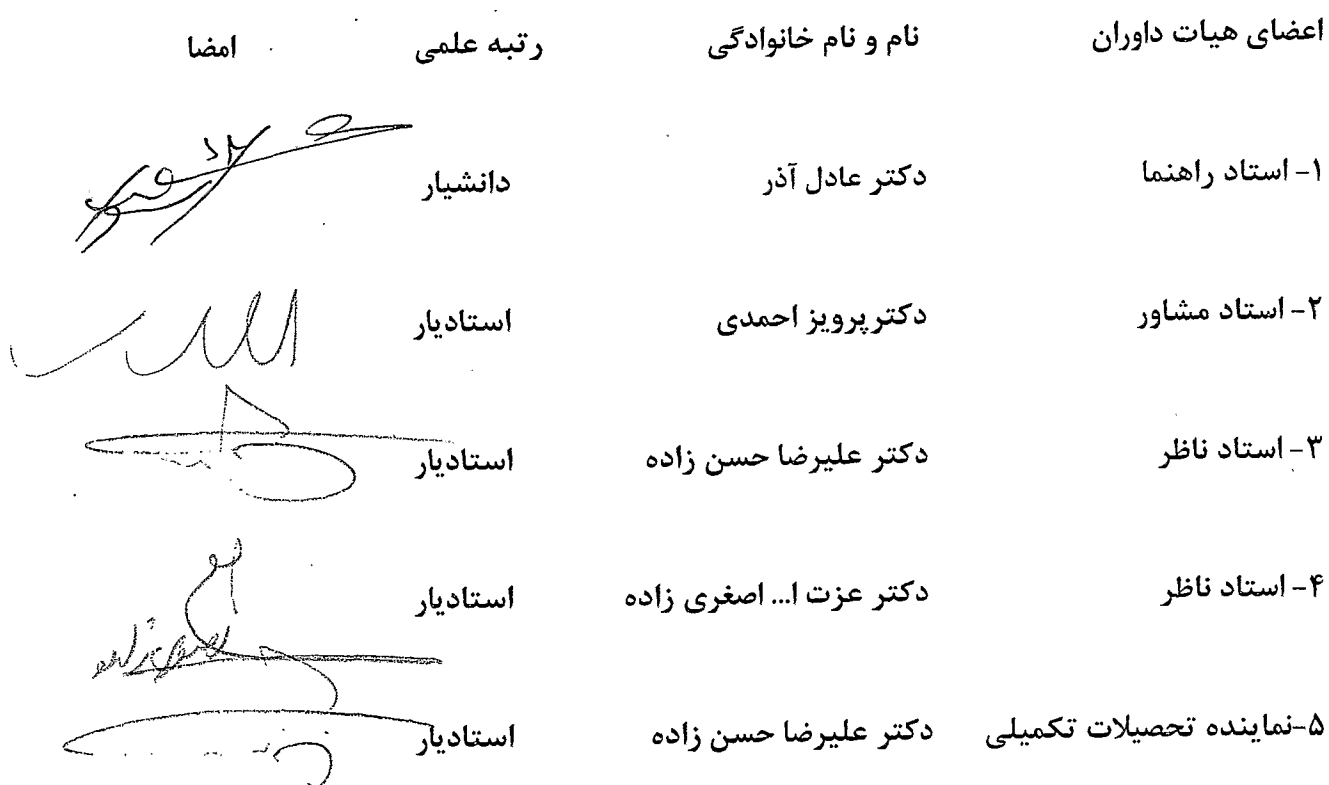 اعضای هیات داوران نام و نام خانوادگی رتبه علمی امضا
۱- استاد راهنما دکتر عادل آذر دانشیار
۲- استاد مشاور دکتر پرویز احمدی استادیار
۳- استاد ناظر دکتر علیرضا حسن زاده استادیار
۴- استاد ناظر دکتر عزت ا... اصغری زاده استادیار
۵-نماینده تحصیلات تکمیلی دکتر علیرضا حسن زاده استادیار